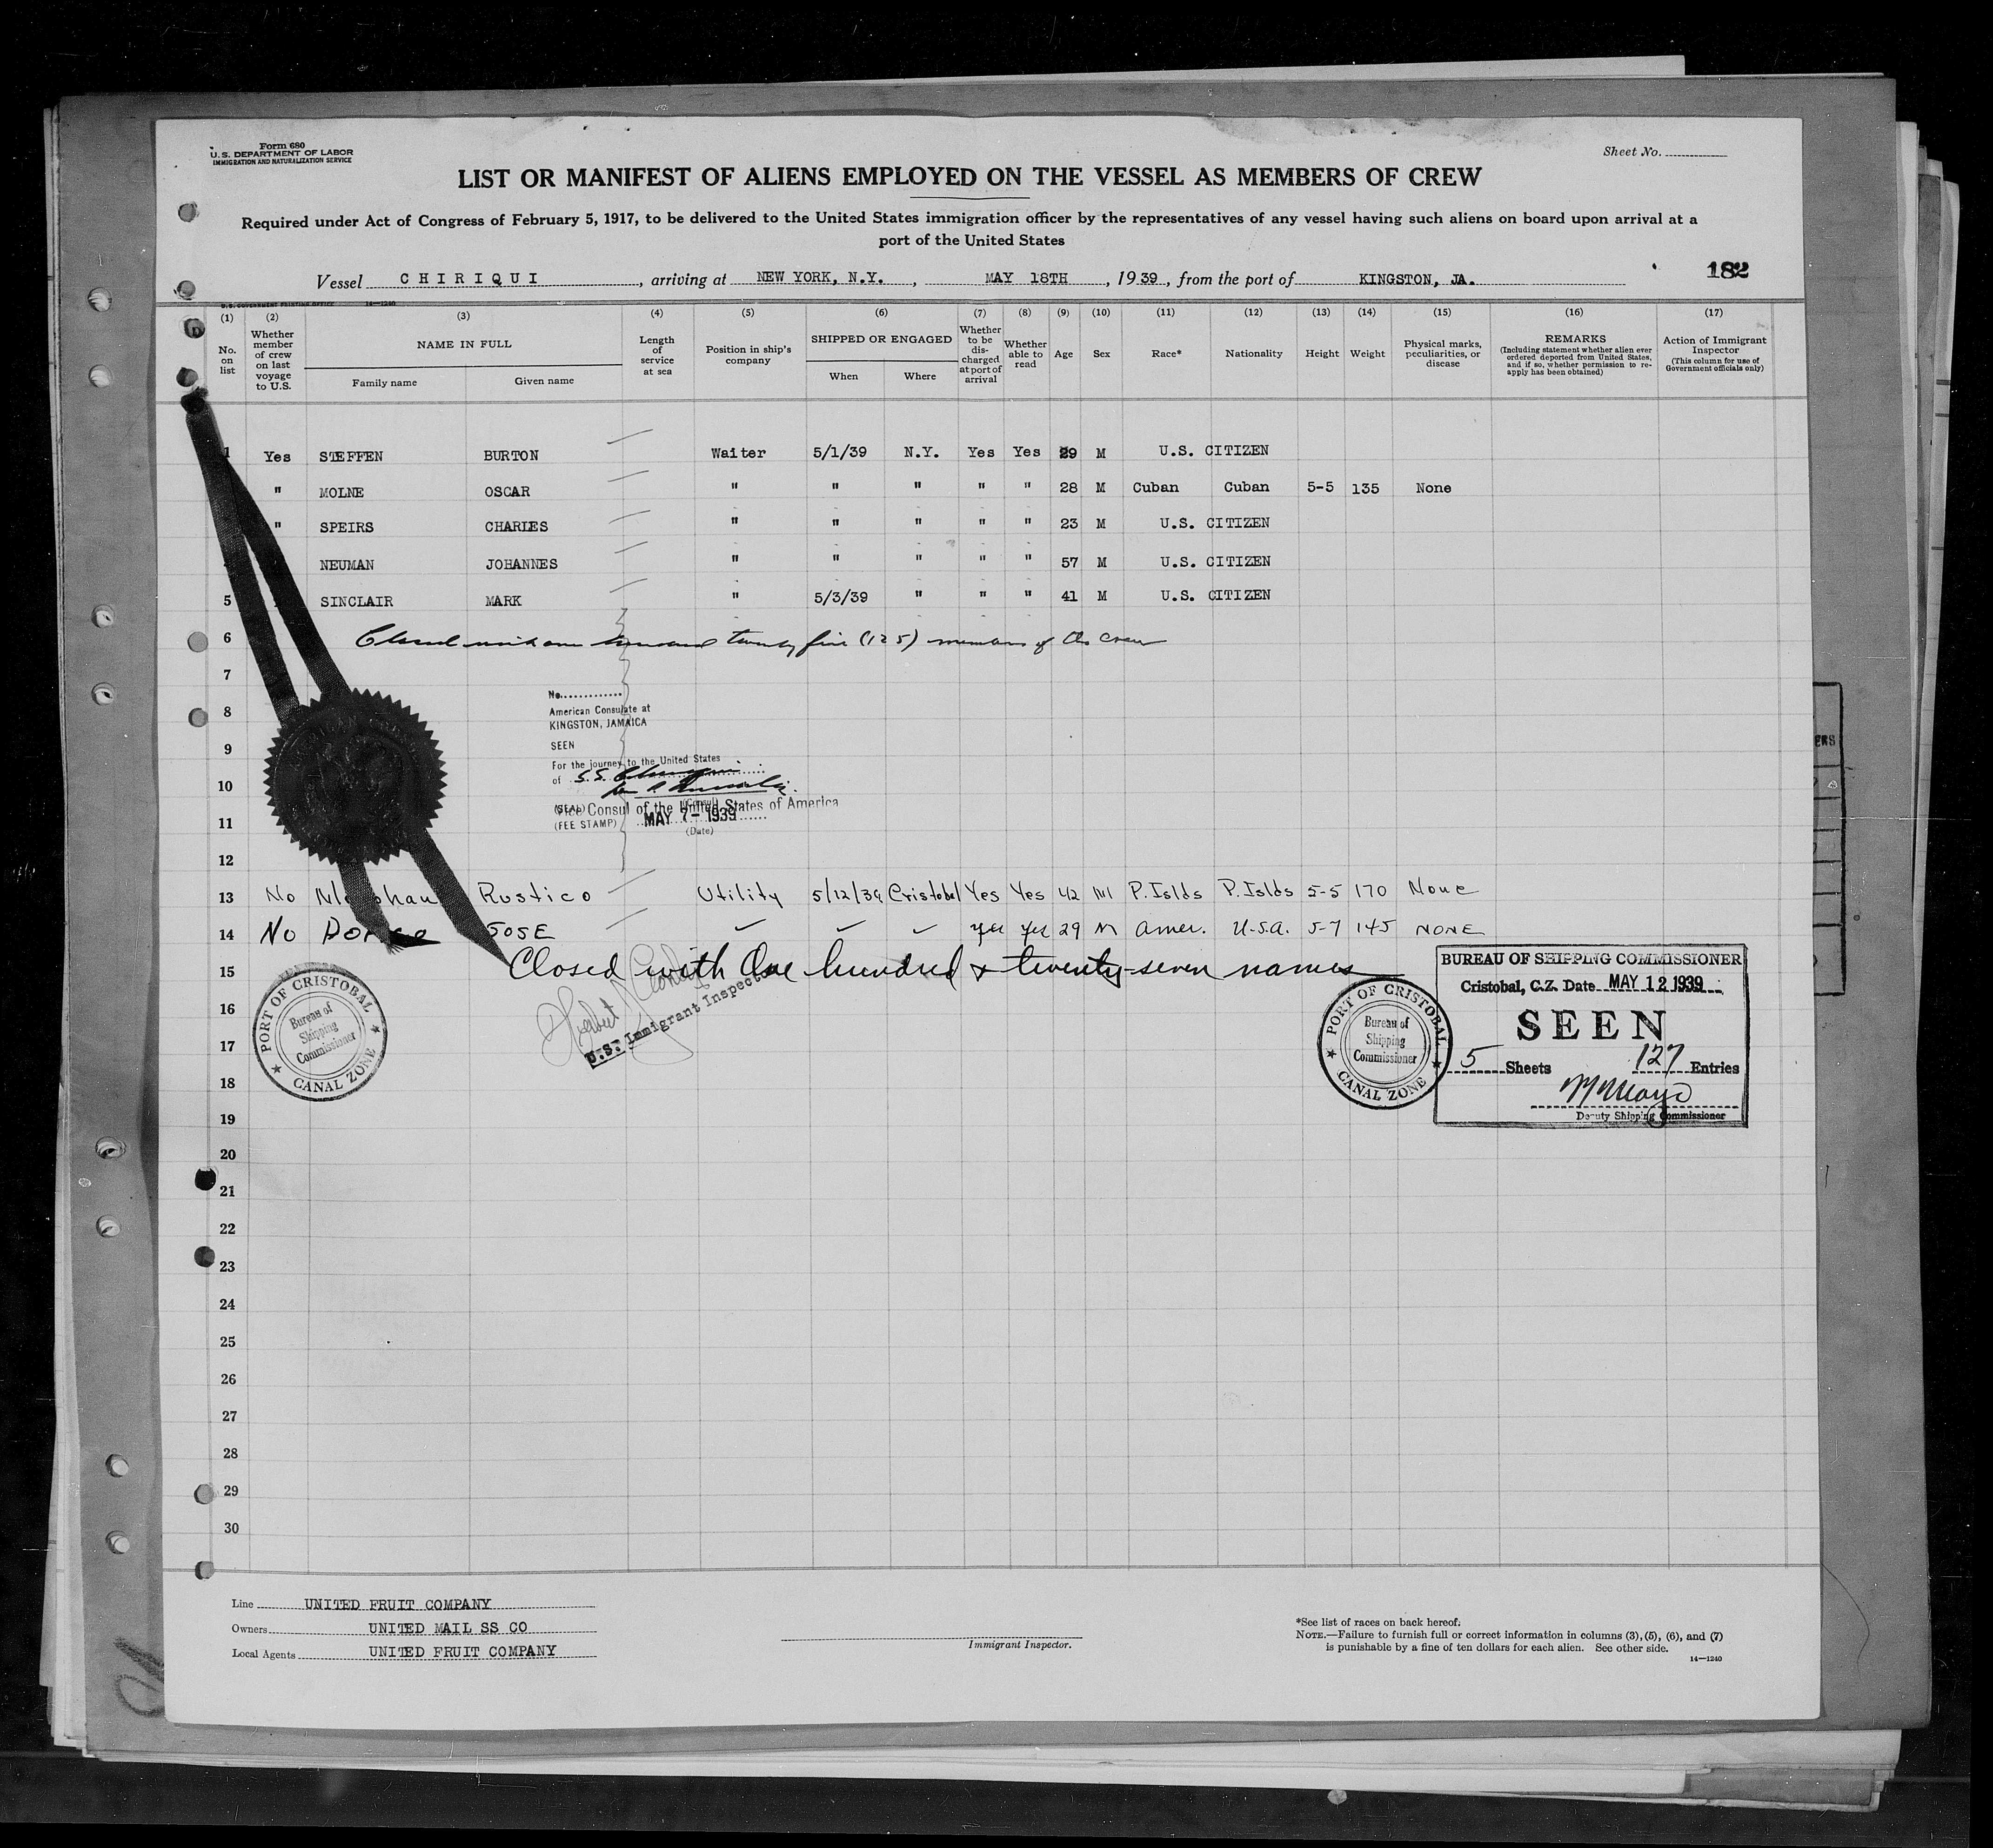 Form 680
U.S. DEPARTMENT OF LABOR
IMMIGRATION AND NATURALIZATION SERVICE
Sheet No.
LIST OR MANIFEST OF ALIENS EMPLOYED ON THE VESSEL AS MEMBERS OF CREW
Required under Act of Congress of February 5, 1917, to be delivered to the United States immigration officer by the representatives of any vessel having such aliens on board upon arrival at a
port of the United States
Vessel CHIRIQUI, arriving at NEW YORK, N.Y., MAY 18TH, 1939, from the port of KINGSTON, JA.
182
U.S. GOVERNMENT PRINTING OFFICE 14—1240
(1) (2) (3) (4) (5) (6) (7) (8) (9) (10) (11) (12) (13) (14) (15) (16) (17)
No. on list
Whether member of crew on last voyage to U.S.
NAME IN FULL
Family name Given name
Length of service at sea
Position in ship's company
SHIPPED OR ENGAGED
When Where
Whether to be discharged at port of arrival
Whether able to read
Age
Sex
Race*
Nationality
Height
Weight
Physical marks, peculiarities, or disease
REMARKS
(Including statement whether alien ever ordered deported from United States, and if so, whether permission to re-apply has been obtained)
Action of Immigrant Inspector
(This column for use of Government officials only)
1 Yes STEFFEN BURTON Waiter 5/1/39 N.Y. Yes Yes 29 M U.S. CITIZEN
" MOLNE OSCAR " " " " " 28 M Cuban Cuban 5-5 135 None
" SPEIRS CHARLES " " " " " 23 M U.S. CITIZEN
NEUMAN JOHANNES " " " " " 57 M U.S. CITIZEN
5 SINCLAIR MARK " 5/3/39 " " " 41 M U.S. CITIZEN
6 Closed with one hundred twenty five (125) members of the crew
7
8
9
10
11
12
No.
American Consulate at
KINGSTON, JAMAICA
SEEN
For the journey to the United States
of S.S. Chiriqui
(SEAL) (Consul)
Vice Consul of the United States of America
(FEE STAMP) MAY 7- 1939
(Date)
13 No Rustico Utility 5/12/39 Cristobal Yes Yes 42 M P. Islds P. Islds 5-5 170 None
14 No JOSE ✓ ✓ ✓ Yes Yes 29 M Amer. U.S.A. 5-7 145 NONE
15 Closed with One hundred & twenty-seven names
16
17
18
19
20
21
22
23
24
25
26
27
28
29
30
Herbert
U.S. Immigrant Inspector
PORT OF CRISTOBAL
Bureau of
Shipping
Commissioner
CANAL ZONE
PORT OF CRISTOBAL
Bureau of
Shipping
Commissioner
CANAL ZONE
BUREAU OF SHIPPING COMMISSIONER
Cristobal, C.Z. Date MAY 12 1939
SEEN
5 Sheets 127 Entries
Deputy Shipping Commissioner
Line UNITED FRUIT COMPANY
Owners UNITED MAIL SS CO
Local Agents UNITED FRUIT COMPANY
Immigrant Inspector.
*See list of races on back hereof.
NOTE.—Failure to furnish full or correct information in columns (3), (5), (6), and (7)
is punishable by a fine of ten dollars for each alien. See other side.
14—1240